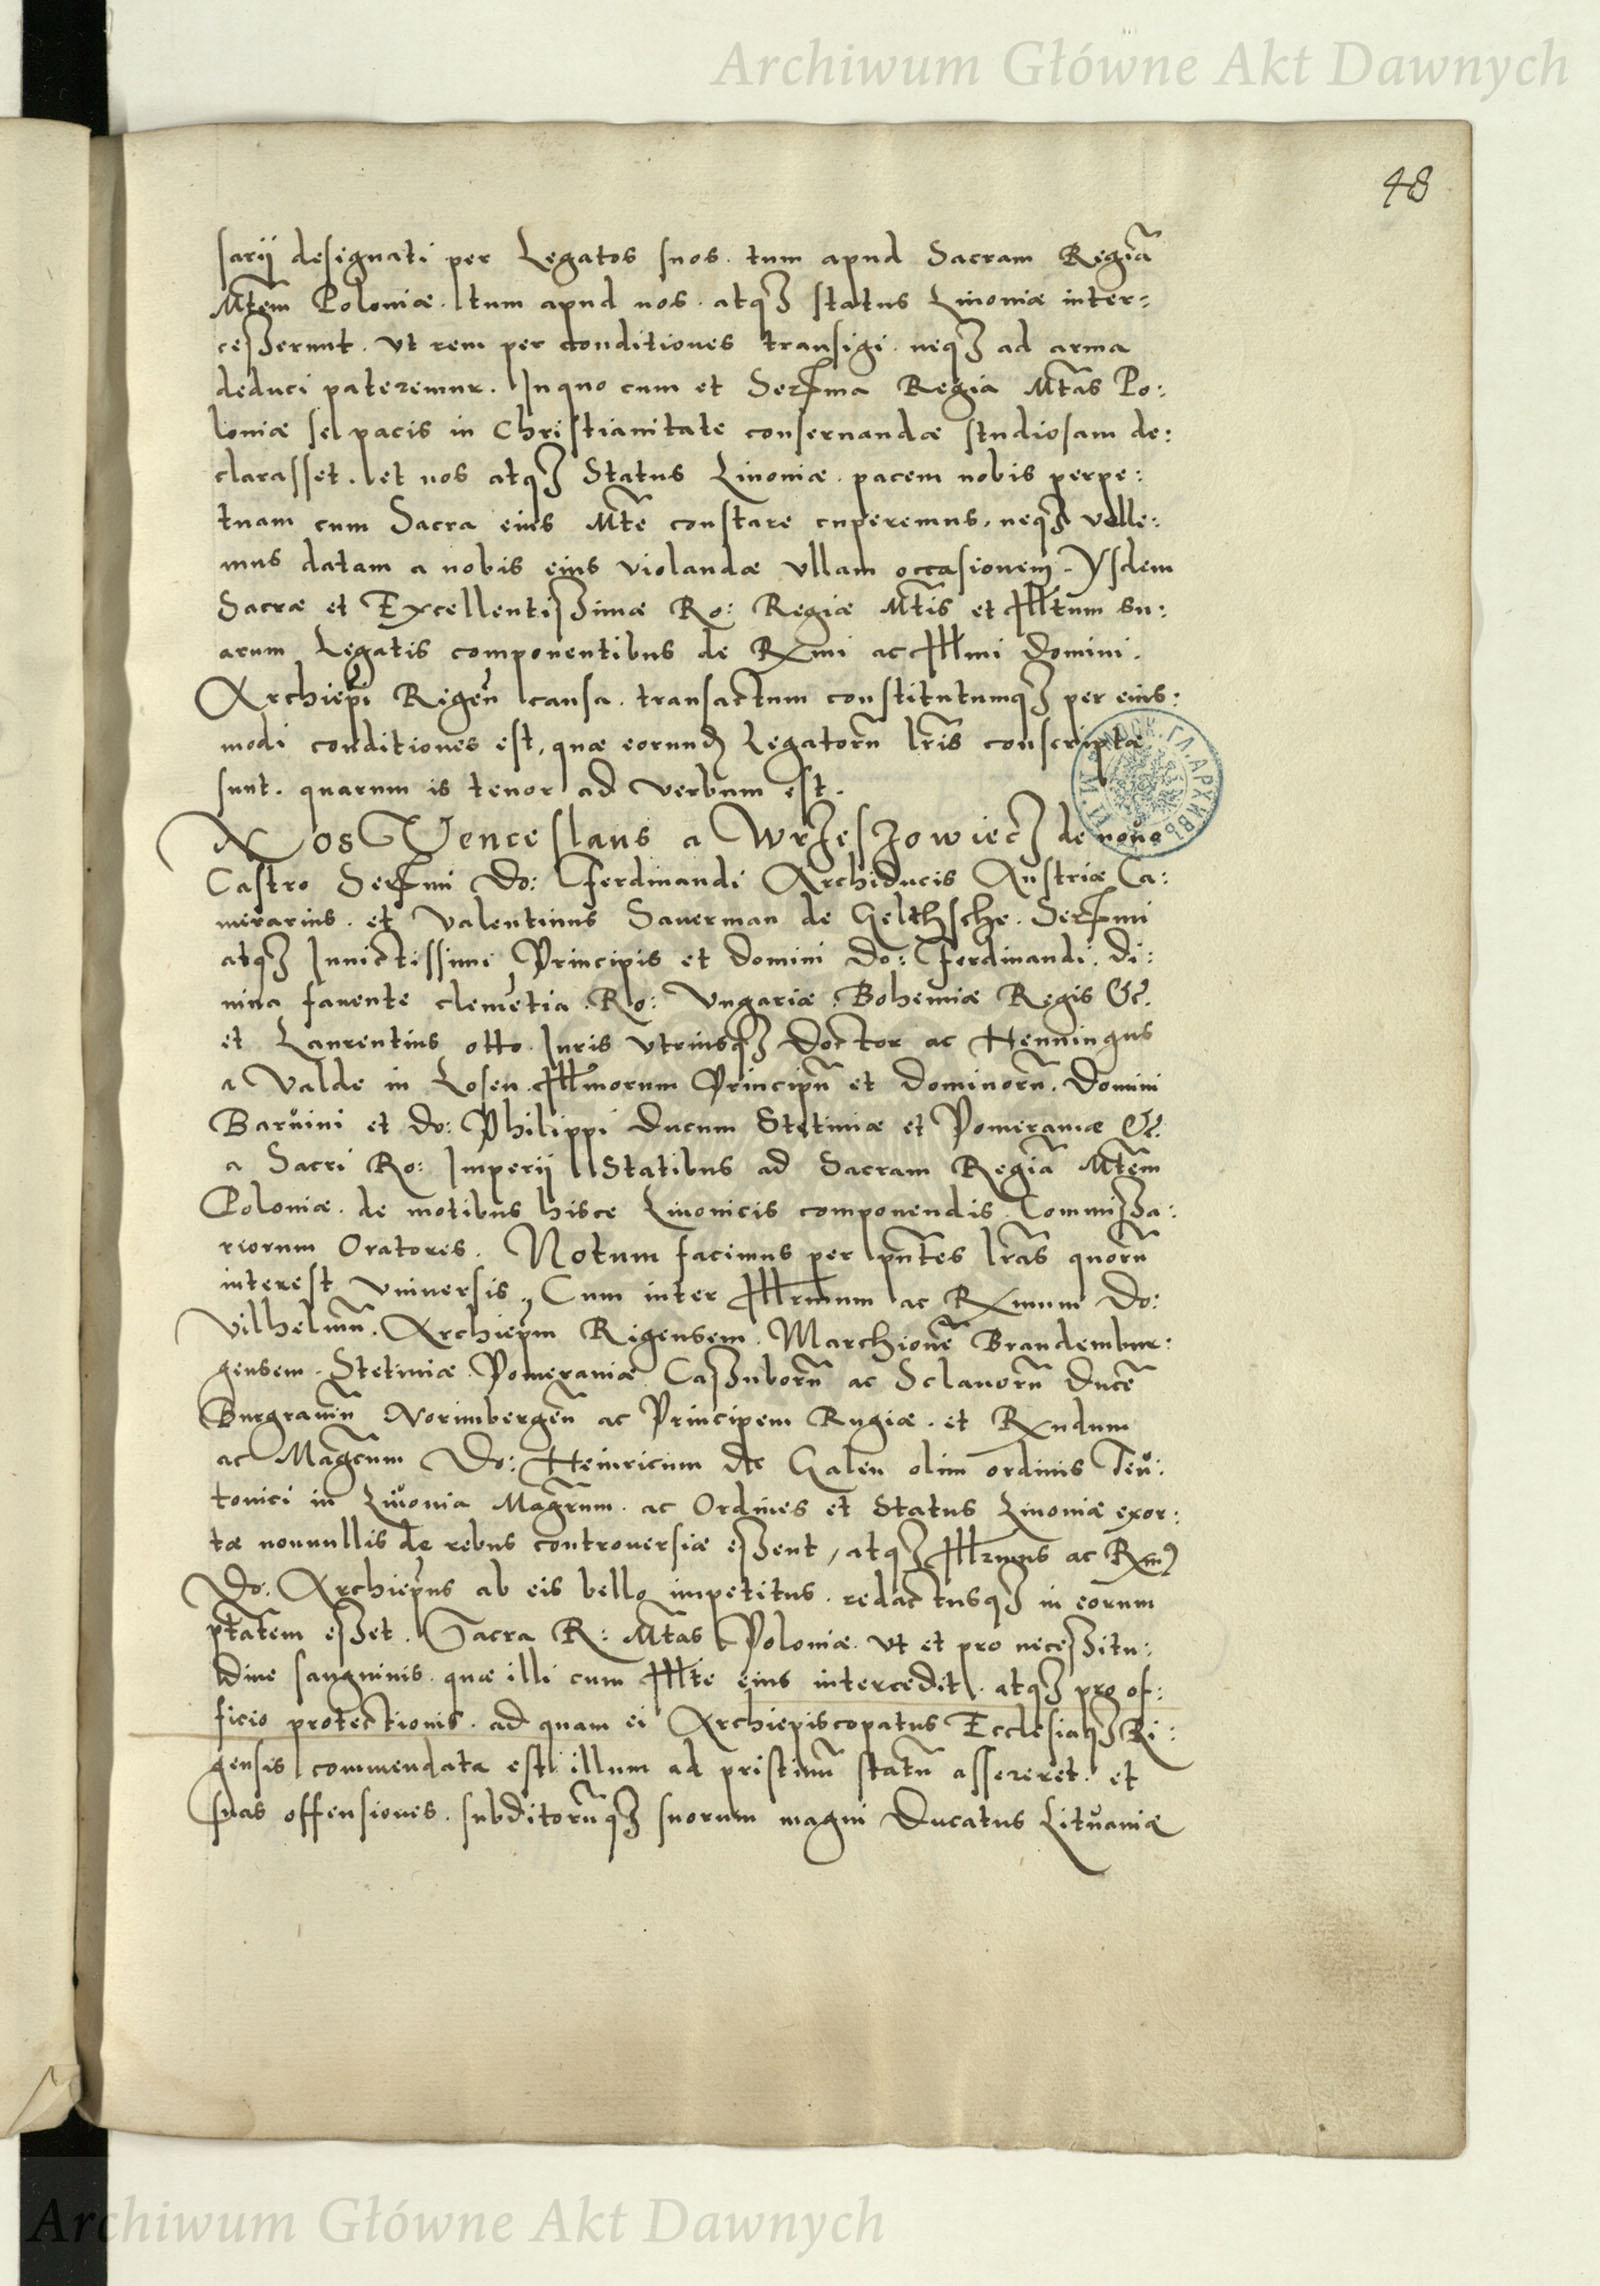 Archiwum Główne Akt Dawnych
48
sarij designati per Legatos suos. tum apud Sacram Regiã
Mtem Poloniæ. tum apud nos. atqз status Liuoniæ inter=
ceſzerunt. Vt rem per conditiones transigi. neqз ad arma
deduci pateremur. In quo cum et Serma Regia Mtas Po:
loniæ se pacis in Christianitate conseruandæ studiosam de:
clarasset. et nos atqз Status Liuoniæ. pacem nobis perpe:
tuam cum Sacra eius Mte constare cuperemus, neqз velle:
mus datam a nobis eius violandæ vllam occasionem. Ysdem
Sacræ et Excellentiſzimæ Ro: Regiæ Mtis et Illtum su:
arum Legatis componentibus de Rxmi ac Illmi Domini.
Archiepi Rigeñ causa. transactum constitutumqз per eius:
modi conditiones est, quæ eorund Legatorũ lris conscriptæ
sunt. quarum is tenor ad verbum est.
Nos Venceslaus a Wrzeszowiecz de nouo
Castro Sermi Do: Ferdinandi Archiducis Austriæ Ca:
merarius. et Valentinus Sauerman de Gelthsche. Sermi
atqз Inuictissimi Principis et Domini Do: Ferdinandi. di:
uina fauente clemẽtia. Ro: Vngariæ. Bohemiæ Regis &c.
et Laurentius otto. Iuris Vtriusqз Doctor ac Henningus
a Valde in Losen. Illmorum Principũ et Dominorũ. Domini
Baruini et Do: Philippi Ducum Stetiniæ et Pomeraniæ &c.
a Sacri Ro: Imperij Statibus ad Sacram Regiã Mtem
Poloniæ. de motibus hisce Liuonicis componendis. Commiſza:
riorum Oratores. Notum facimus per pñtes lras quorũ
interest Vniuersis, Cum inter Illrmum ac Rxmum Do:
Vilhelmũ. Archiepm Rigensem. Marchionẽ Brandembur:
gensem. Stetiniæ. Pomeraniæ. Caſzuborũ ac Sclauorũ Ducẽ
Burgrauiũ Norimbergeñ ac Principem Rugiæ. et Rxndum
ac Magcum Do: Heinricum de Galen olim ordinis Teu:
tonici in Liuonia Magrum. ac Ordines et Status Liuoniæ exor:
tæ nonnullis de rebus controuersiæ eſzent, atqз Illrmus ac Rxm9
Do. Archiepus ab eis bello impetitus. redactusqз in eorum
ptatem eſzet. Sacra R: Mtas Poloniæ. Vt et pro neceſzitu:
dine sanguinis. quæ illi cum Illte eius intercedit. atqз pro of:
ficio protectionis. ad quam ei Archiepiscopatus Ecclesiaqз Ri:
gensis commendata est illum ad pristinũ statũ assereret. et
suas offensiones. subditorũqз suorum magni Ducatus Lituaniæ
Archiwum Główne Akt Dawnych